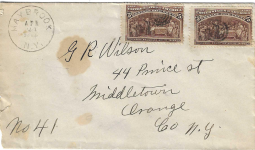 G R Wilson
44 Prince st
Middletown
Orange
Co N.Y.
No 41
N.Y.